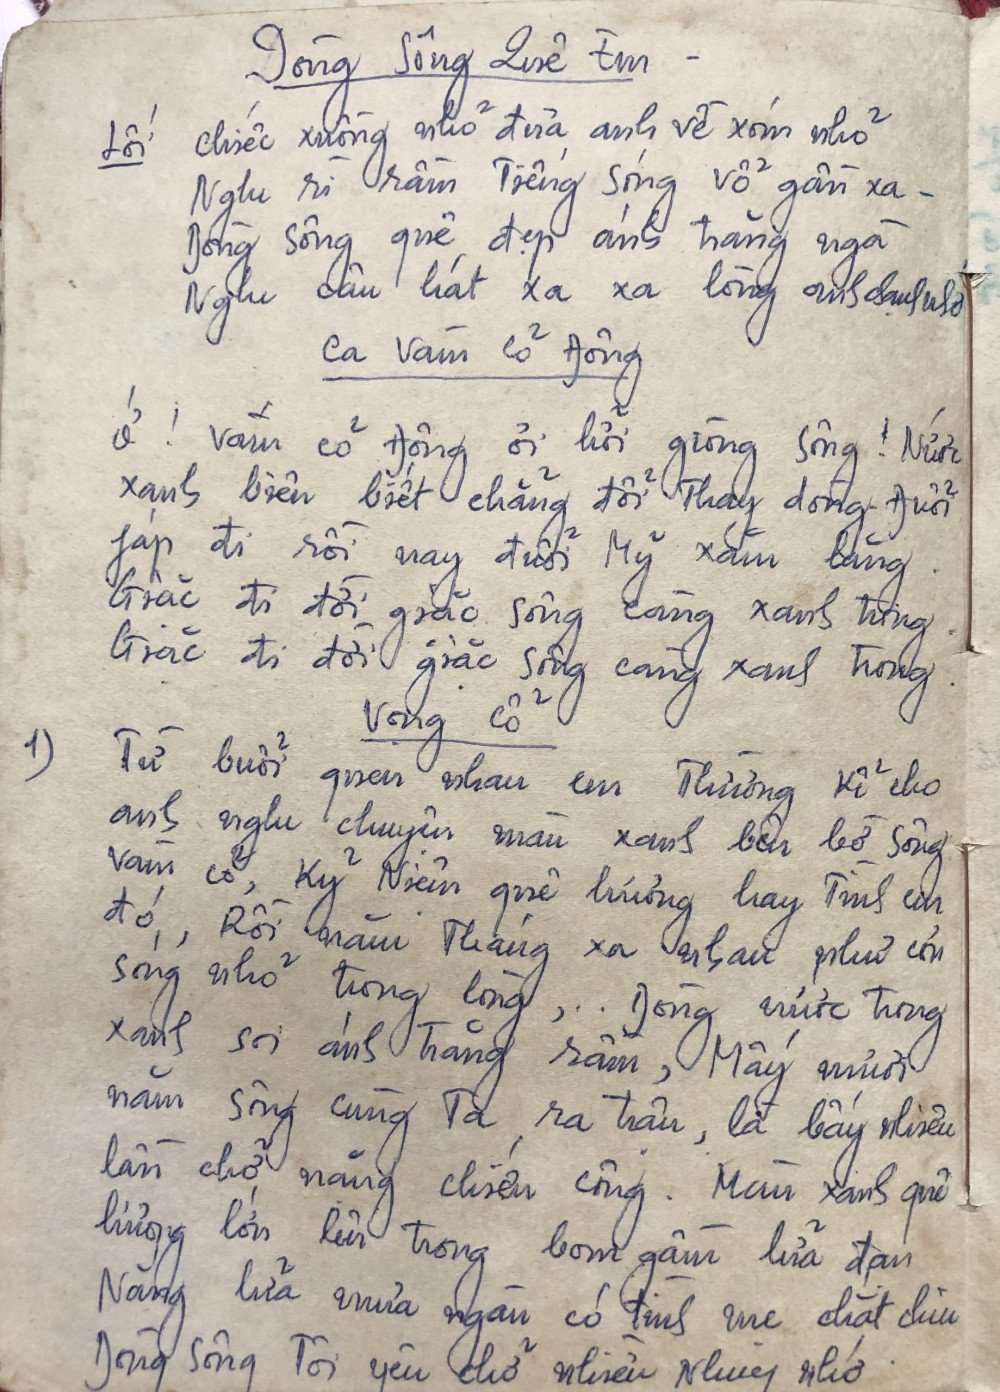 Dòng Sông Quê Em -
Lối chiếc xuồng nhỏ đưa anh về xóm nhỏ
Nghe rì rầm Tiếng Sóng Vỗ gần xa -
Dòng Sông quê đẹp ánh trăng ngà
Nghe câu hát xa xa lòng anh chạnh nhớ
Ca Vàm Cỏ Đông
Ớ ! Vàm cỏ Đông ơi hỡi giòng Sông ! Nước
xanh biên biết chẳng đổi Thay dòng. Đuổi
Pháp đi rồi nay đuổi Mỹ xâm lăng.
Giặc đi đời giặc sông càng xanh trong.
Giặc đi đời giặc sông càng xanh trong.
Vọng Cổ
1) Từ buổi quen nhau em Thường Kể cho
anh nghe chuyện màu xanh bên bờ Sông
Vàm cỏ, Kỷ Niệm quê hương hay Tình em
đó, Rồi năm Tháng xa nhau như cơn
sóng nhỏ trong lòng,.. Dòng nước trong
xanh soi ánh trăng rằm, Mấy mươi
năm sông cùng Ta ra trận, là bấy nhiêu
lần chở nặng chiến công. Màu xanh quê
hương lớn lên trong bom gầm lửa đạn
Nắng lửa mưa ngàn có tình mẹ chắt chiu
Dòng Sông Tôi yêu chở nhiều Nhung nhớ.